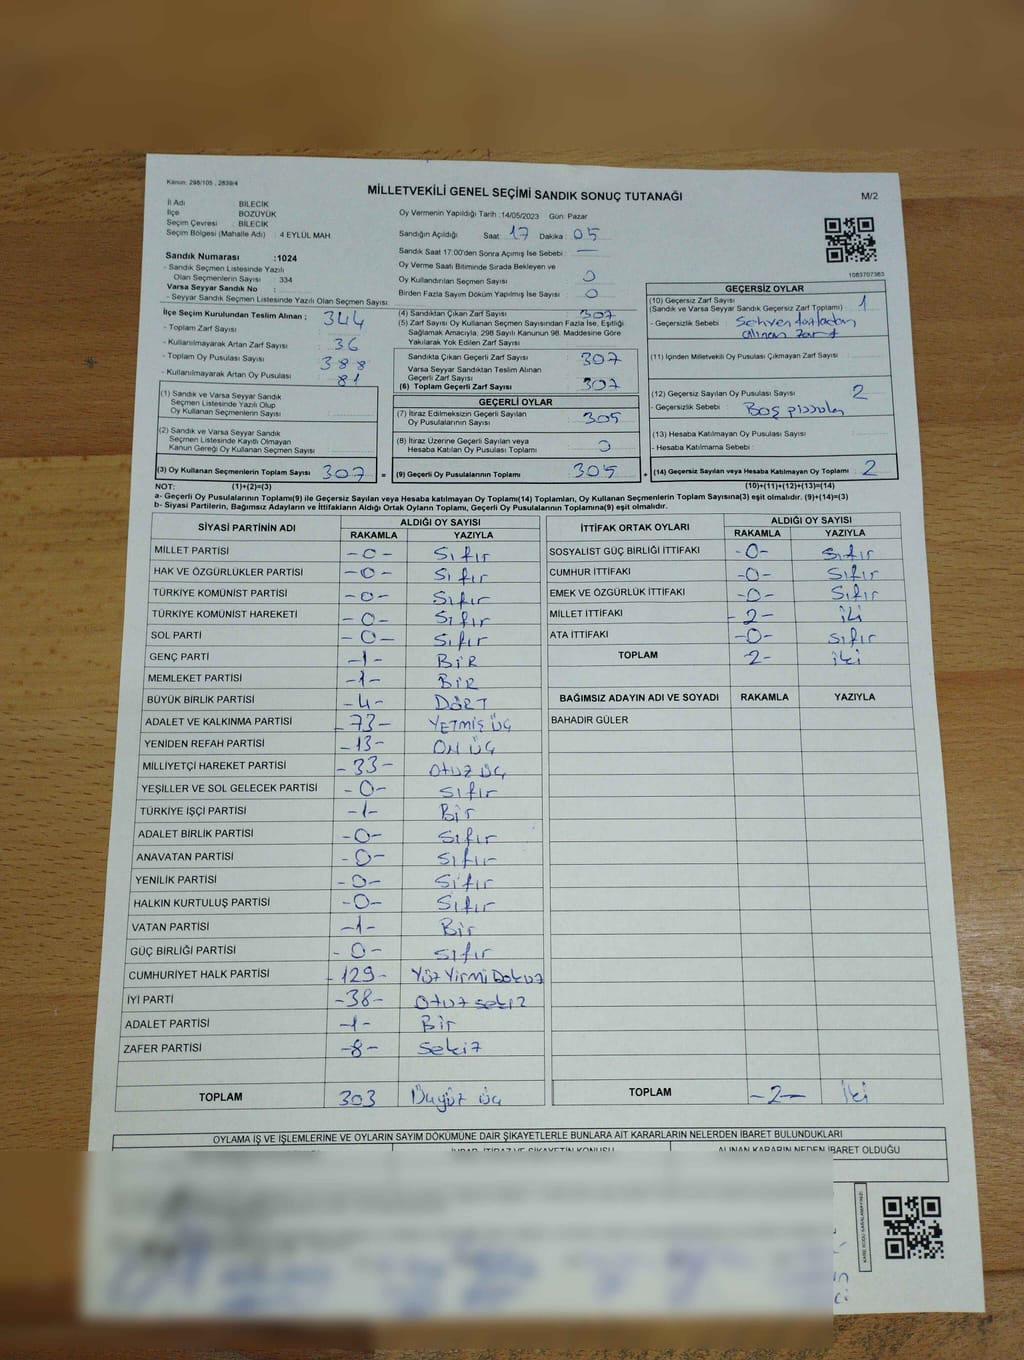 Kanun: 298/105 , 2839/4
MİLLETVEKİLİ GENEL SEÇİMİ SANDIK SONUÇ TUTANAĞI
M/2
İl Adı BİLECİK
İlçe BOZÜYÜK
Seçim Çevresi BİLECİK
Seçim Bölgesi (Mahalle Adı) : 4 EYLÜL MAH.
Oy Vermenin Yapıldığı Tarih :14/05/2023 Gün: Pazar
Sandığın Açıldığı Saat: 17 Dakika: 05
Sandık Saat 17:00'den Sonra Açılmış İse Sebebi: —
Oy Verme Saati Bitiminde Sırada Bekleyen ve
Oy Kullandırılan Seçmen Sayısı : 0
Birden Fazla Sayım Döküm Yapılmış İse Sayısı : 0
1083707363
Sandık Numarası :1024
- Sandık Seçmen Listesinde Yazılı
Olan Seçmenlerin Sayısı : 334
Varsa Seyyar Sandık No :
- Seyyar Sandık Seçmen Listesinde Yazılı Olan Seçmen Sayısı:
İlçe Seçim Kurulundan Teslim Alınan ; 344
- Toplam Zarf Sayısı
- Kullanılmayarak Artan Zarf Sayısı : 36
- Toplam Oy Pusulası Sayısı : 388
- Kullanılmayarak Artan Oy Pusulası : 81
(1) Sandık ve Varsa Seyyar Sandık
Seçmen Listesinde Yazılı Olup
Oy Kullanan Seçmenlerin Sayısı :
(2) Sandık ve Varsa Seyyar Sandık
Seçmen Listesinde Kayıtlı Olmayan
Kanun Gereği Oy Kullanan Seçmen Sayısı :
(3) Oy Kullanan Seçmenlerin Toplam Sayısı 307 =
(4) Sandıktan Çıkan Zarf Sayısı : 307
(5) Zarf Sayısı Oy Kullanan Seçmen Sayısından Fazla İse, Eşitliği
Sağlamak Amacıyla, 298 Sayılı Kanunun 98. Maddesine Göre
Yakılarak Yok Edilen Zarf Sayısı :
Sandıkta Çıkan Geçerli Zarf Sayısı : 307
Varsa Seyyar Sandıktan Teslim Alınan
Geçerli Zarf Sayısı :
(6) Toplam Geçerli Zarf Sayısı : 307
GEÇERLİ OYLAR
(7) İtiraz Edilmeksizin Geçerli Sayılan
Oy Pusulalarının Sayısı : 305
(8) İtiraz Üzerine Geçerli Sayılan veya
Hesaba Katılan Oy Pusulası Toplamı : 0
(9) Geçerli Oy Pusulalarının Toplamı 305 +
GEÇERSİZ OYLAR
(10) Geçersiz Zarf Sayısı
(Sandık ve Varsa Seyyar Sandık Geçersiz Zarf Toplamı) : 1
- Geçersizlik Sebebi : Sehven fazladan
alınan zarf
(11) İçinden Milletvekili Oy Pusulası Çıkmayan Zarf Sayısı :
(12) Geçersiz Sayılan Oy Pusulası Sayısı : 2
- Geçersizlik Sebebi : Boş pusula
(13) Hesaba Katılmayan Oy Pusulası Sayısı :
- Hesaba Katılmama Sebebi :
(14) Geçersiz Sayılan veya Hesaba Katılmayan Oy Toplamı : 2
NOT: (1)+(2)=(3) (10)+(11)+(12)+(13)=(14)
a- Geçerli Oy Pusulalarının Toplamı(9) ile Geçersiz Sayılan veya Hesaba katılmayan Oy Toplamı(14) Toplamları, Oy Kullanan Seçmenlerin Toplam Sayısına(3) eşit olmalıdır. (9)+(14)=(3)
b- Siyasi Partilerin, Bağımsız Adayların ve İttifakların Aldığı Ortak Oyların Toplamı, Geçerli Oy Pusulalarının Toplamına(9) eşit olmalıdır.
SİYASİ PARTİNİN ADI ALDIĞI OY SAYISI
RAKAMLA YAZIYLA
MİLLET PARTİSİ -0- Sıfır
HAK VE ÖZGÜRLÜKLER PARTİSİ -0- Sıfır
TÜRKİYE KOMÜNİST PARTİSİ -0- Sıfır
TÜRKİYE KOMÜNİST HAREKETİ -0- Sıfır
SOL PARTİ -0- Sıfır
GENÇ PARTİ -1- BİR
MEMLEKET PARTİSİ -1- BİR
BÜYÜK BİRLİK PARTİSİ -4- DÖRT
ADALET VE KALKINMA PARTİSİ -73- YETMİŞ ÜÇ
YENİDEN REFAH PARTİSİ -13- ON ÜÇ
MİLLİYETÇİ HAREKET PARTİSİ -33- otuz üç
YEŞİLLER VE SOL GELECEK PARTİSİ -0- Sıfır
TÜRKİYE İŞÇİ PARTİSİ -1- Bir
ADALET BİRLİK PARTİSİ -0- Sıfır
ANAVATAN PARTİSİ -0- Sıfır
YENİLİK PARTİSİ -0- Sıfır
HALKIN KURTULUŞ PARTİSİ -0- Sıfır
VATAN PARTİSİ -1- Bir
GÜÇ BİRLİĞİ PARTİSİ -0- Sıfır
CUMHURİYET HALK PARTİSİ -129- Yüz Yirmi Dokuz
İYİ PARTİ -38- otuz sekiz
ADALET PARTİSİ -1- Bir
ZAFER PARTİSİ -8- Sekiz
TOPLAM 303 Üçyüz üç
İTTİFAK ORTAK OYLARI ALDIĞI OY SAYISI
RAKAMLA YAZIYLA
SOSYALİST GÜÇ BİRLİĞİ İTTİFAKI -0- Sıfır
CUMHUR İTTİFAKI -0- Sıfır
EMEK VE ÖZGÜRLÜK İTTİFAKI -0- Sıfır
MİLLET İTTİFAKI -2- iki
ATA İTTİFAKI -0- Sıfır
TOPLAM 2- iki
BAĞIMSIZ ADAYIN ADI VE SOYADI RAKAMLA YAZIYLA
BAHADIR GÜLER
TOPLAM -2- iki
OYLAMA İŞ VE İŞLEMLERİNE VE OYLARIN SAYIM DÖKÜMÜNE DAİR ŞİKAYETLERLE BUNLARA AİT KARARLARIN NELERDEN İBARET BULUNDUKLARI
İHBAR, İTİRAZ VE ŞİKAYETİN KONUSU ALINAN KARARIN NEDEN İBARET OLDUĞU